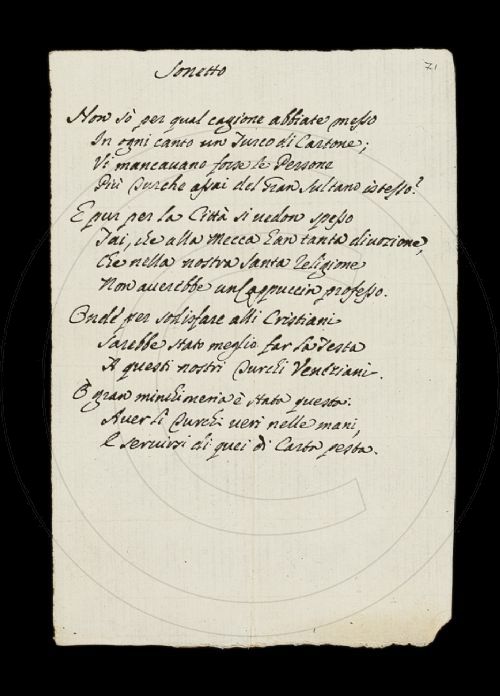 Sonetto
71
Non sò per qual cagione abbiate messo
In ogni canto un Turco di Cartone;
Vi mancavano forse le Persone
Più Turche assai del Gran Sultano istesso?
E pur per la Città si vedon spesso
Tai, che alla Mecca han tanta divozione,
Che nella nostra Santa Religione
Non averebbe un Cappuccin professo.
Onde per sodisfare alli Cristiani
Sarebbe stato meglio far la Testa
A questi nostri Turchi Veneziani.
O gran minchioneria è stata questa:
Aver li Turchi veri nelle mani,
E servirsi di quei di Carta pesta.